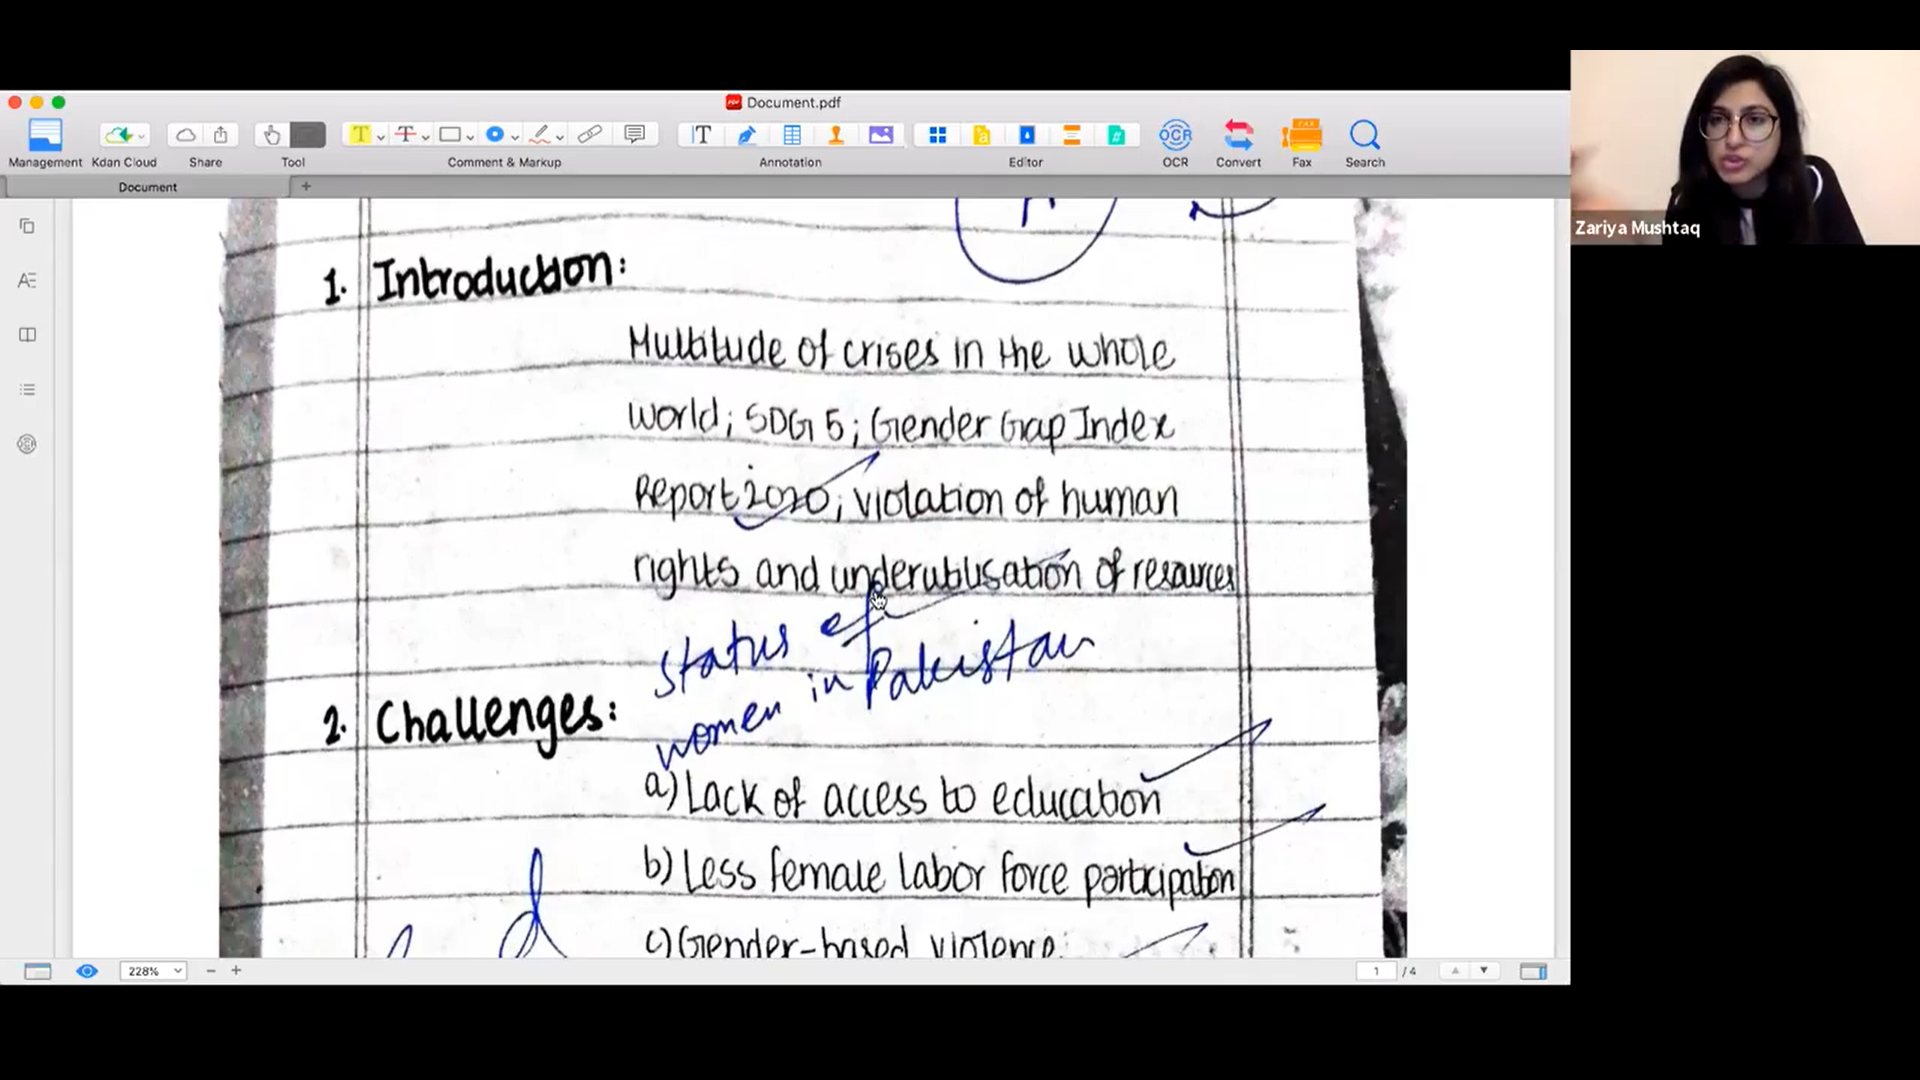 Document.pdf
Management
Kdan Cloud
Share
Tool
Comment & Markup
Annotation
Editor
OCR
OCR
Convert
FAX
Fax
Search
Document
Zariya Mushtaq
1. Introduction:
Multitude of crises in the whole
world; SDG 5; Gender Gap Index
Report 2020; violation of human
rights and underutilisation of resources
Status of
women in Pakistan
2. Challenges:
a) Lack of access to education
b) Less female labor force participation
c) Gender-based violence
228%
1 / 4